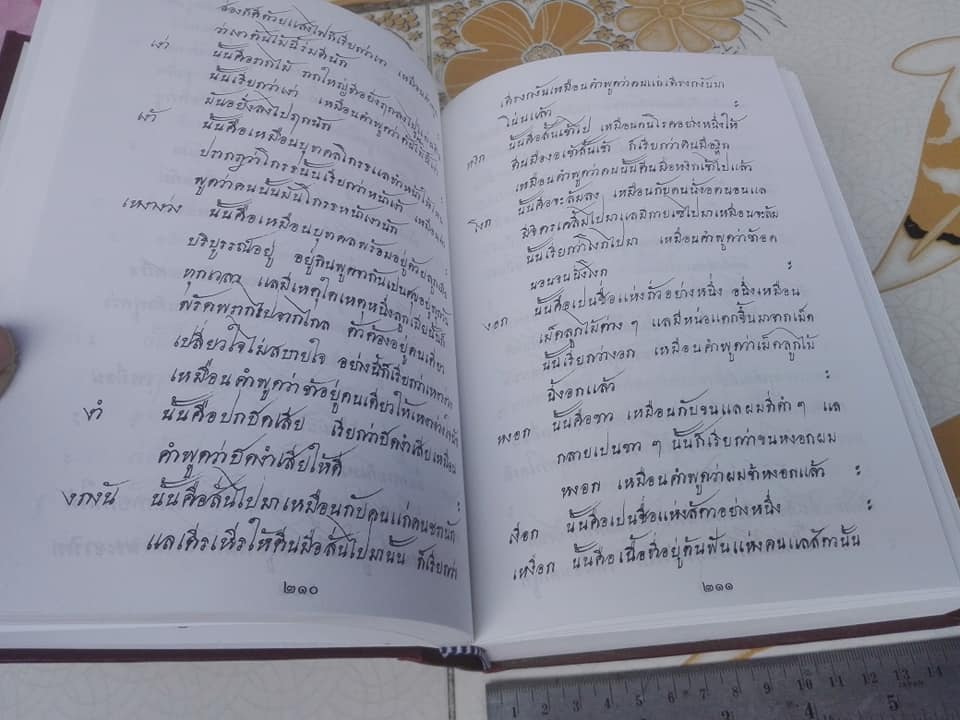 ว่าเงาคันไม้ฉิ่ร่มดีนัก
เง่า นั้นคือรากไม้
นั้นเรียกว่าเง่า เหมือนคำพูดว่า
มันอยั่งลงไปฦกนัก
เง้า นั้นคือเหมือนบุทคลโกรธแลทำหน้า
ปรากฏว่าโกรธนั้นเรียกว่าหน้าเง้า เหมือน
พูดว่าคนนั้นมันโกรธหน้าเง้านัก
เหงาง่วง นั้นคือเหมือนบุทคลพร้อมอยู่ด้วยลูกเมีย
บริบูรรณ์อยู่ อยู่กินพูดจากันเปนศุขอยู่
ทุกเวลา แลมีเหตุใดเหตุหนึ่งลูกเมียนั้นก็
พรัดพรากไปจากไกล ตัวต้องอยู่คนเดียว
เปลี่ยวใจไม่สบายใจ อย่างนี้ก็เรียกว่าเหงาง่วง
เหมือนคำพูดว่าข้าอยู่คนเดียวให้เหงาง่วงนัก
งำ นั้นคือปกปิดเสีย เรียกว่าปิดงำเสียเหมือน
คำพูดว่าปิดงำเสียให้ดี
งกงัน นั้นคือสั่นไปมาเหมือนกับคนแก่คนชรานัก
แลเดิรเหิรให้ตีนมือสั่นไปมานั้น ก็เรียกว่า
๒๑๐
เดิรงกงันเหมือนคำพูดว่าคนแก่เดิรงกงันมา
โน่นแล้ว
หงิก นั้นคือสั้นเข้าไป เหมือนคนโรคอย่างหนึ่งให้
ตีนมืองอเข้าสั้นเข้า ก็เรียกว่าตีนมือหงิก
เหมือนคำพูดว่าคนนั้นตีนมือหงิกเข้าไปแล้ว
โงก นั้นคือจะล้มลง เหมือนกับคนนั่งอดนอนแล
มีจิตรเคลิ้มไปมาแลมีกายเซไปมาเหมือนจะล้ม
นั้นเรียกว่าโงกไปมา เหมือนคำพูดว่าข้าอด
นอนจนนั่งโงก
งอก นั้นคือเปนชื่อแห่งถั่วอย่างหนึ่ง อนึ่งเหมือน
เม็ดลูกไม้ต่าง ๆ แลมีหน่อแตกขึ้นมาจากเม็ด
นั้นเรียกว่างอก เหมือนคำพูดว่าเม็ดลูกไม้
นี้งอกแล้ว
หงอก นั้นคือขาว เหมือนกับขนแลผมที่ดำ ๆ แล
กลายเปนขาว ๆ นั้นก็เรียกว่าขนหงอกผม
หงอก เหมือนคำพูดว่าผมข้าหงอกแล้ว
เงือก นั้นคือเปนชื่อแห่งสัตวอย่างหนึ่ง
เหงือก นั้นคือเนื้อที่อยู่ต้นฟันแห่งคนแลสัตวนั้น
๒๑๑
1 2 3 4 5 6 7 8 9 10 11 12 13 14
JAPAN
1 2 3 4 5